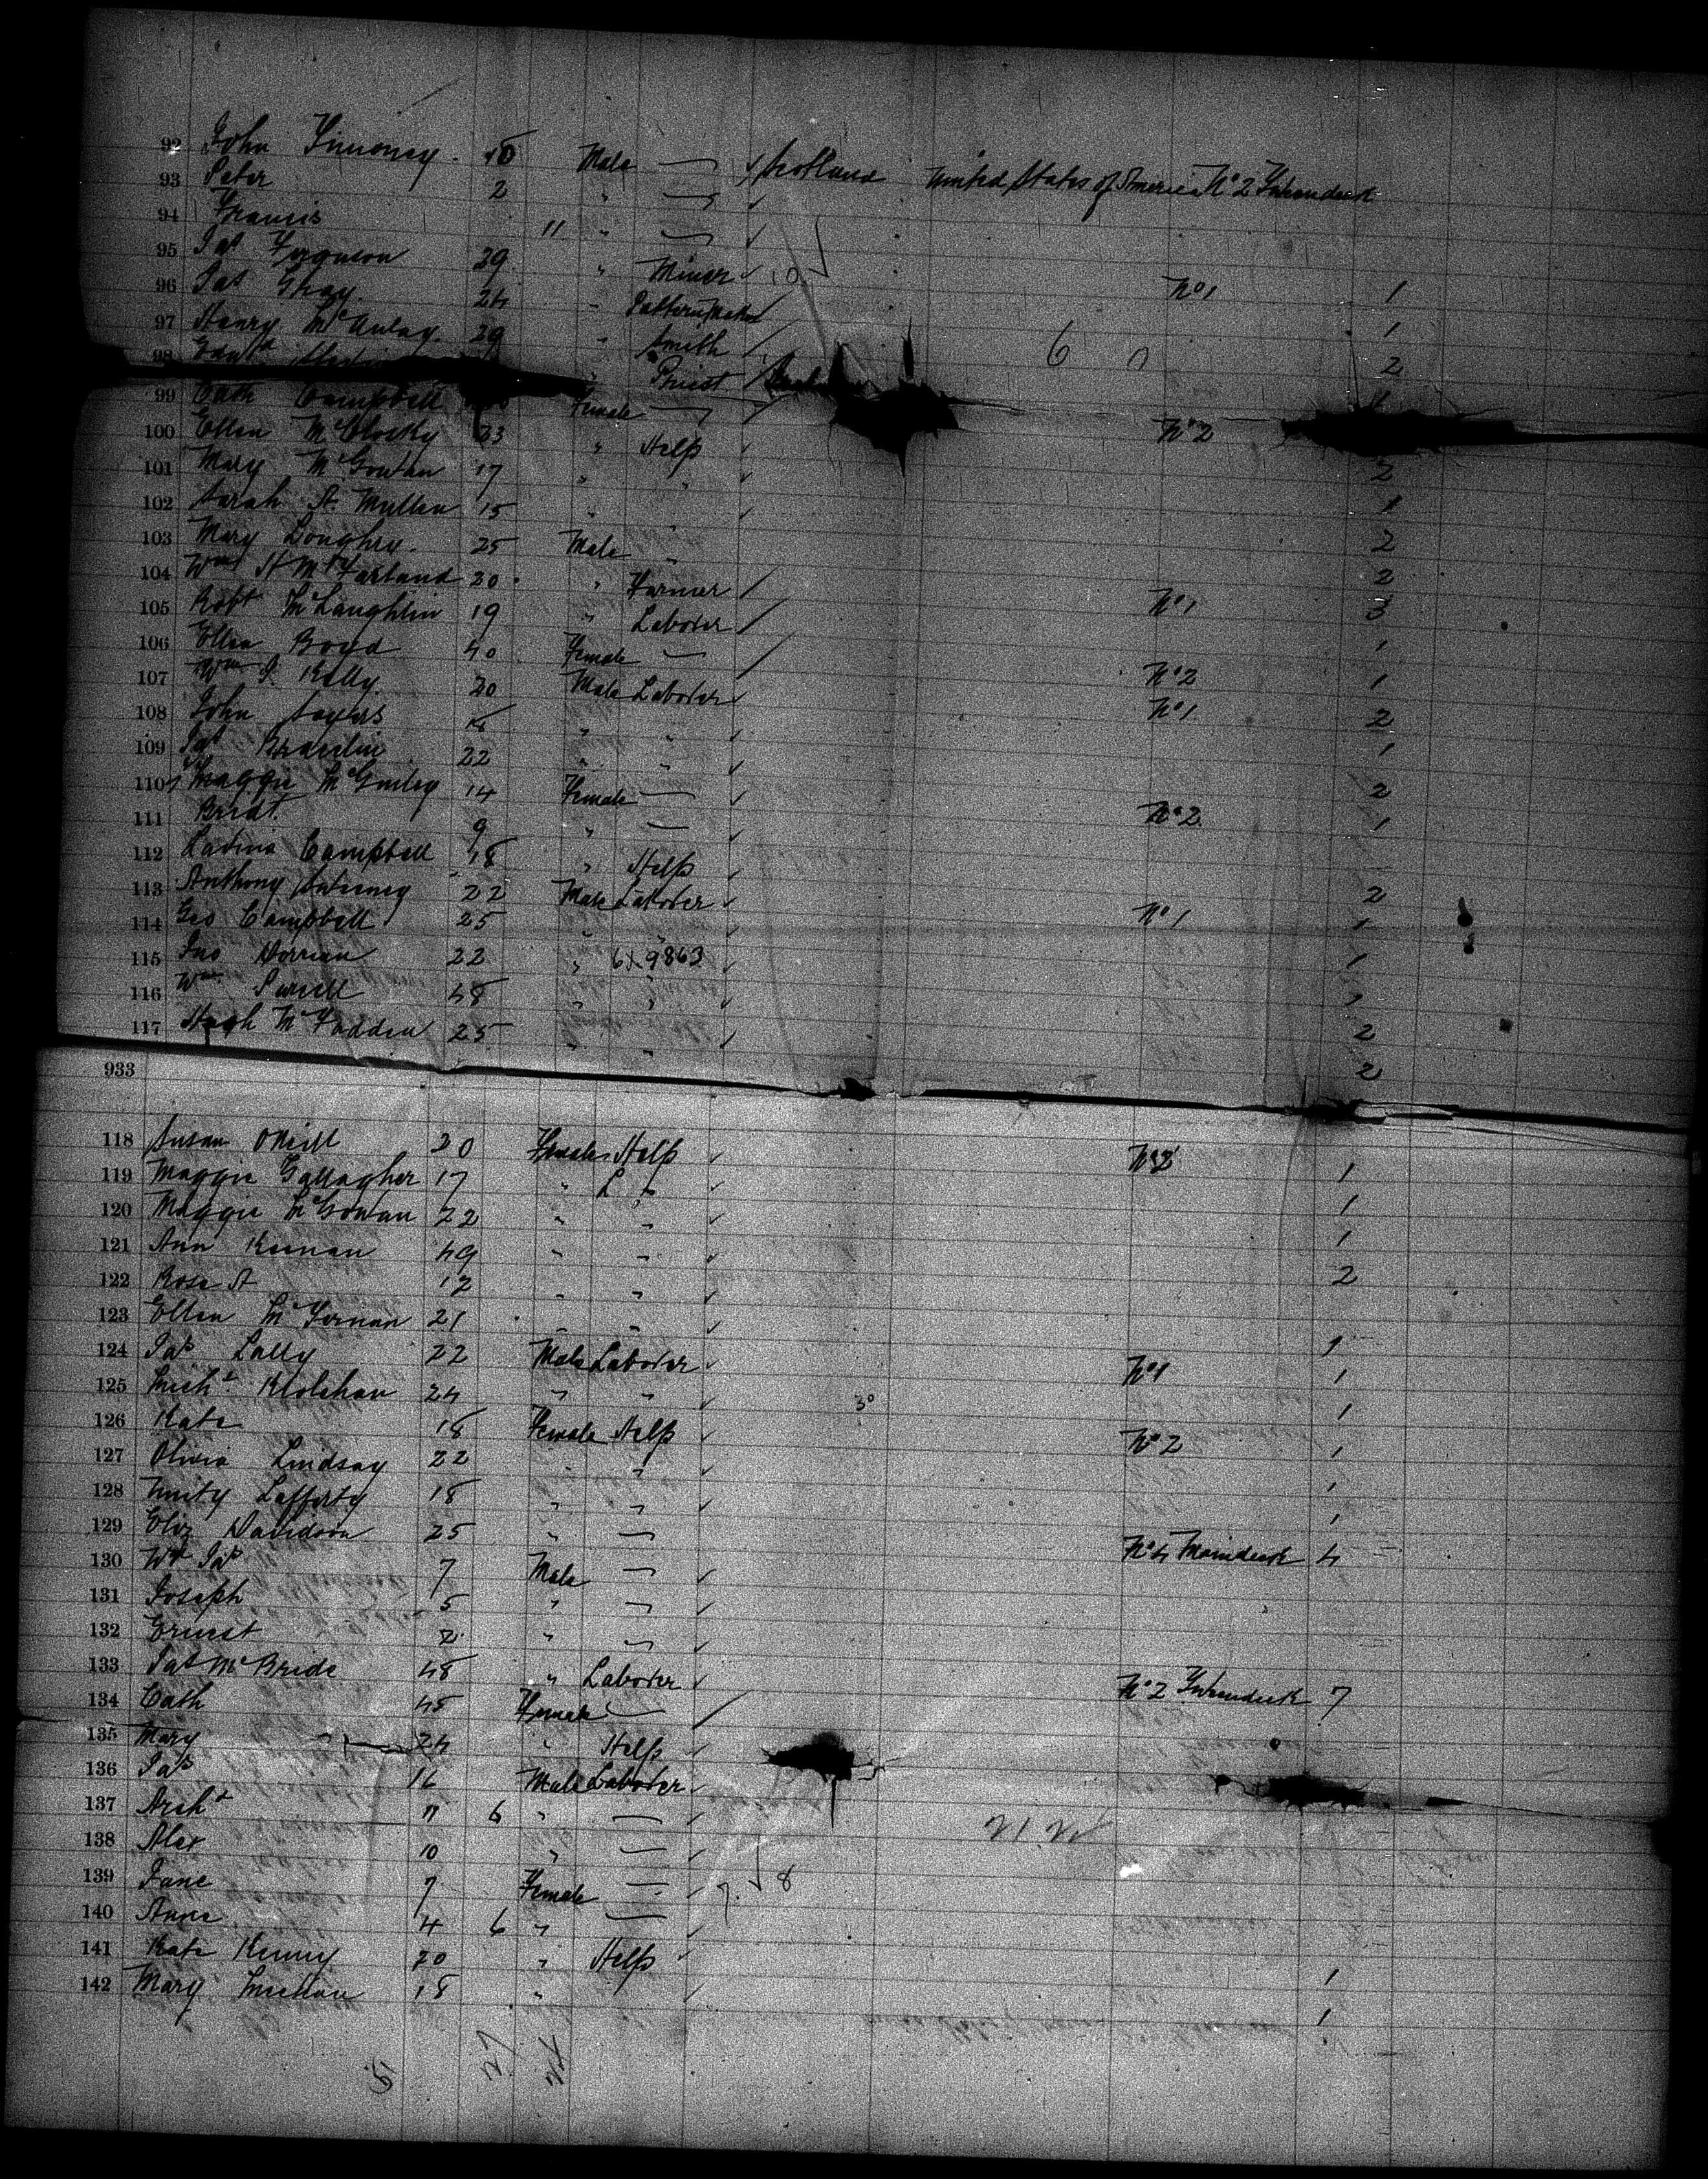 92 John Timoney. Male — ✓ Scotland United States of America No 2 Tweendeck
93 Peter 2 " — ✓
94 Francis 11 " — ✓
95 Jas Ferguson 29 " Miner ✓ No 1 1
96 Jas Gray. 24 " Pattern Maker 1
97 Henry McAulay. 29 " Smith 2
98 " Priest
99 Cath Campbell Female — No 2
100 Ellen McClosky 23 " Help ✓ 2
101 Mary McGowan 17 " " ✓ 1
102 Sarah A. Mullen 15 " " ✓ 2
103 Mary Loughry. 25 Male " 2
104 Wm H McFarland 20 " Farmer / No 1 3
105 Robt McLaughlin 19 " Laborer / 1
106 Ellen Boyd 40 Female — / No 2 1
107 Wm J. Kelly. 20 Male Laborer ✓ No 1 2
108 John Sayers 18 " " ✓ 1
109 Jas Breslin 22 " " ✓ 2
110 Maggie McGinley 14 Female — ✓ No 2. 1
111 Bridt. 9 " — ✓
112 Lavina Campbell 18 " Help ✓ 2
113 Anthony 22 Male Laborer ✓ No 1 1
114 Geo Campbell 25 " " ✓ 1
115 Jno Dorrian 22 " 6X9863 ✓ 1
116 Wm 48 " " ✓ 2
117 Hugh McFadden 25 " " ✓ 2
933
118 Susan ONeill 20 Female Help ✓ No 2 1
119 Maggie Gallagher 17 " ✓ 1
120 Maggie McGowan 22 " " ✓ 1
121 Ann Keenan 49 " " ✓ 2
122 Rose A 12 " " ✓
123 Ellen McTernan 21 " " ✓ 1
124 Jas Lally 22 Male Laborer ✓ No 1 1
125 Michl. 24 " " ✓ 1
126 Kate 18 Female Help ✓ No 2 1
127 Olivia Lindsay 22 " " ✓ 1
128 Unity Lafferty 18 " " ✓ 1
129 Eliz Davidson 25 " — No 4 Maindeck 4
130 Wm Jas 7 Male — ✓
131 Joseph 5 " — ✓
132 Ernest 2 " — ✓
133 Jas McBride 48 " Laborer ✓ No 2 Tweendeck 7
134 Cath 45 Female — /
135 Mary 24 " Help ✓
136 Jas 16 Male Laborer ✓
137 Archd 11 6 " — ✓
138 Alex 10 " — ✓
139 Jane 7 Female — ✓ 8
140 Anne 4 6 " — ✓
141 Kate Kenny 20 " Help ✓ 1
142 Mary Meehan 18 " ✓ 1